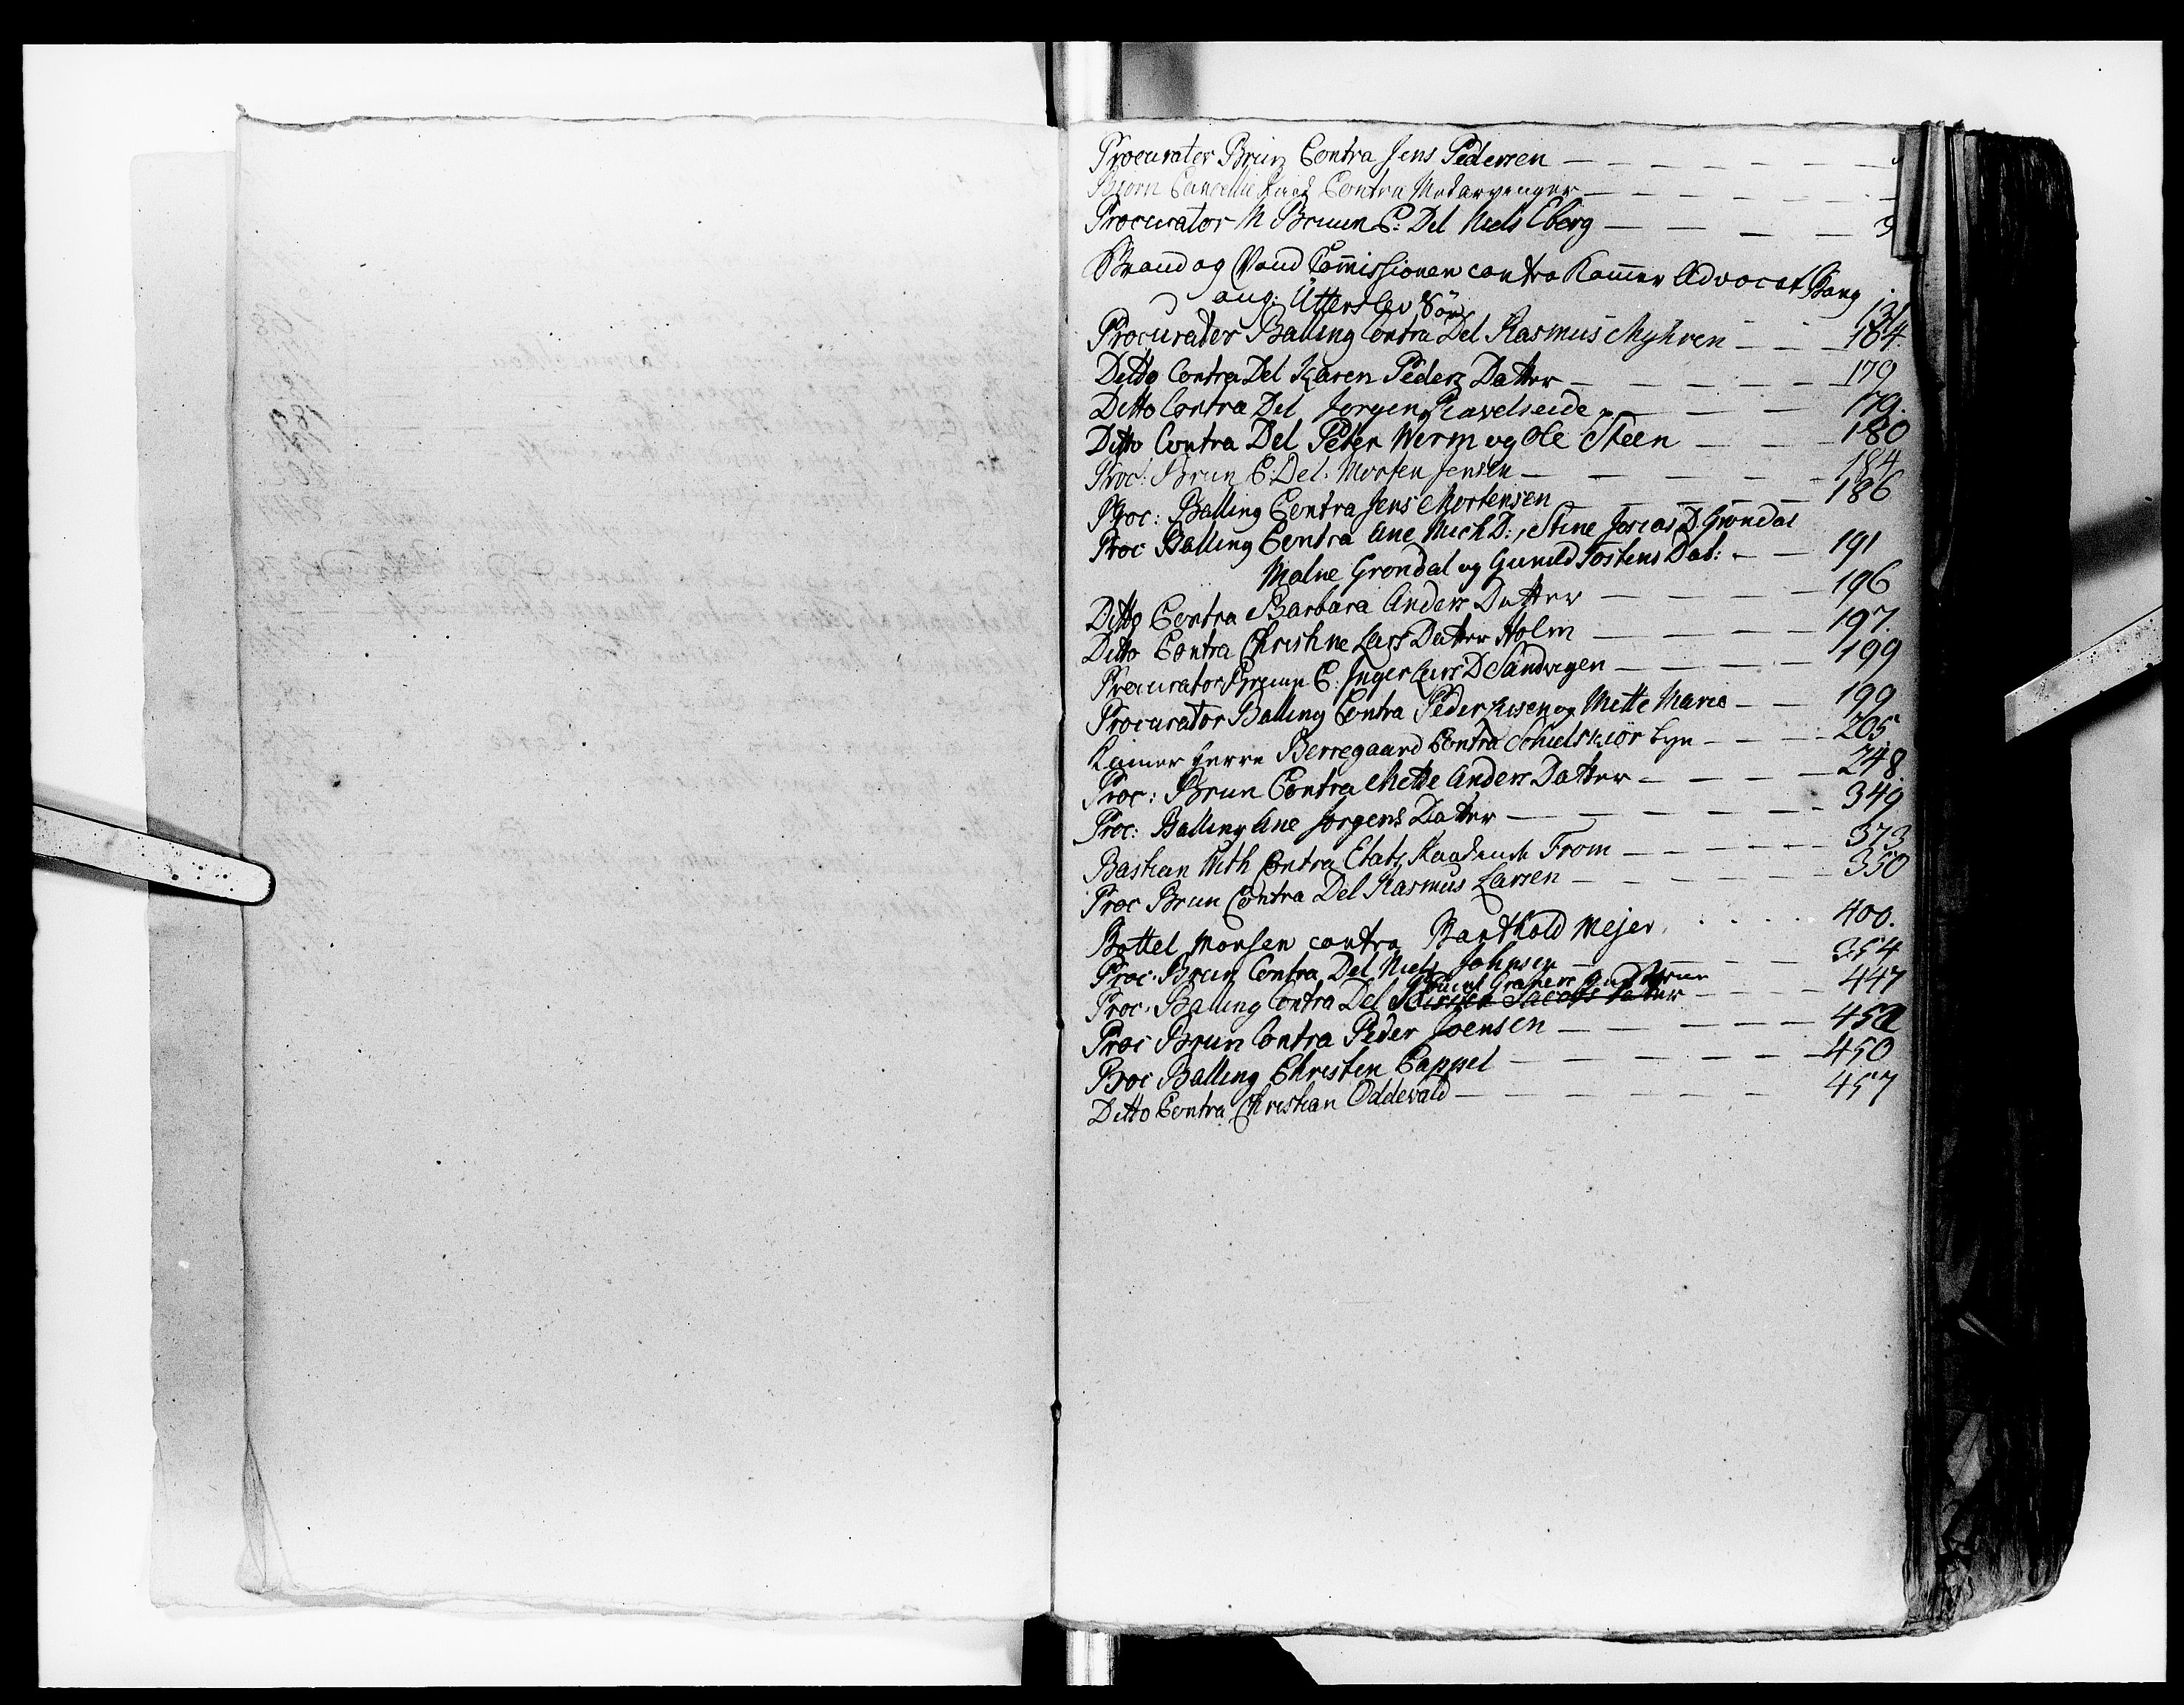 Procurater Brun Contra Jens Pedersen
Biørn Cancellie Contra Medarvenger
Procurator M Bruun C: Del Niels Eberg
Brand og Vand Commissionen contra Kammer Advocat Bang
ang: Utterslev Søe 131
Procurater Balling Contra Del Rasmus Myhren 184
Ditto Contra Del Karen Peders Datter 179
Ditto Contra Del Jørgen 179.
Ditto Contra Del Peter Werm og Ole Steen 180
Proc: Brun C: Del: Morten Jensen 184
Proc: Balling Contra Jens Mortensen 186
Proc Balling Contra Ane Mich D:, Stine Josias D. Grøndal
Malne Grøndal og Gunild Tostens Dat: 191
Ditto Contra Barbara Anders Datter 196
Ditto Contra Christine Lars Datter Holm 197
Procurator Bruun C: Inger Lars D Sandvigen 199
Procurator Balling Contra Peder og Mette Marie 199
Kammer Herre Berregaard Contra Schielskiør bye 205
Proc: Brun Contra Mette Anders Datter 248
Proc: Balling Ane Jørgens Datter 349
Bastian With Contra Etatz Raadinde From 373
Proc Brun Contra Del Rasmus Larsen 350
Bottel Monsen contra Barthold Mejer 400.
Proc: Brun Contra Del Niels Johnsen 354
Proc: Balling Contra Del Jacobs Datter 447
Proc Brun Contra Peder Joensen 452
Proc Balling Christen Cappel 450
Ditto Contra Christian Oddevald 457